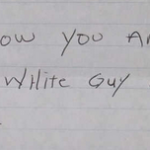 ow you A
White Guy